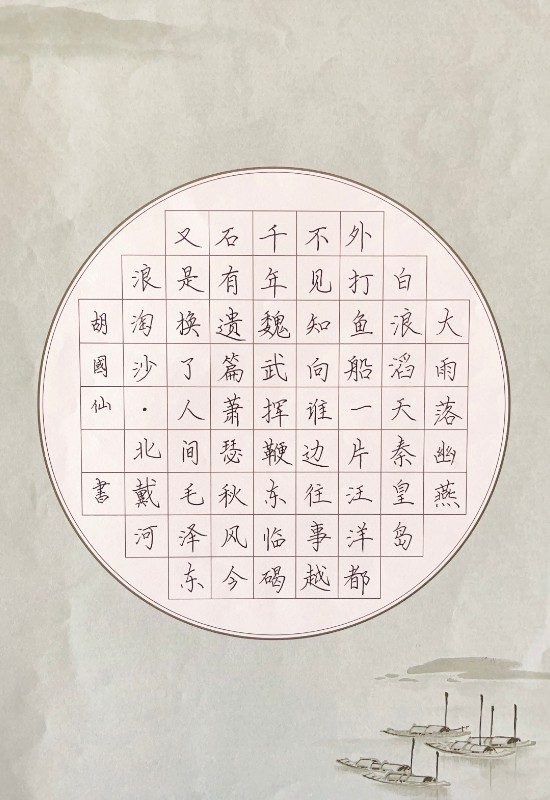 大雨落幽燕
白浪滔天秦皇岛
外打鱼船一片汪洋都
不见知向谁边往事越
千年魏武挥鞭东临碣
石有遗篇萧瑟秋风今
又是换了人间毛泽东
浪淘沙·北戴河
胡國仙 書